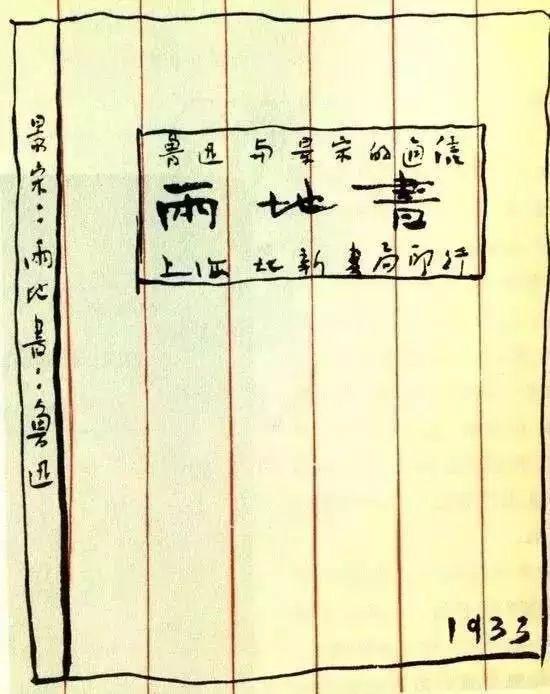 景宋：兩地書：魯迅
魯迅与景宋的通信
兩地書
上海北新書局印行
1933